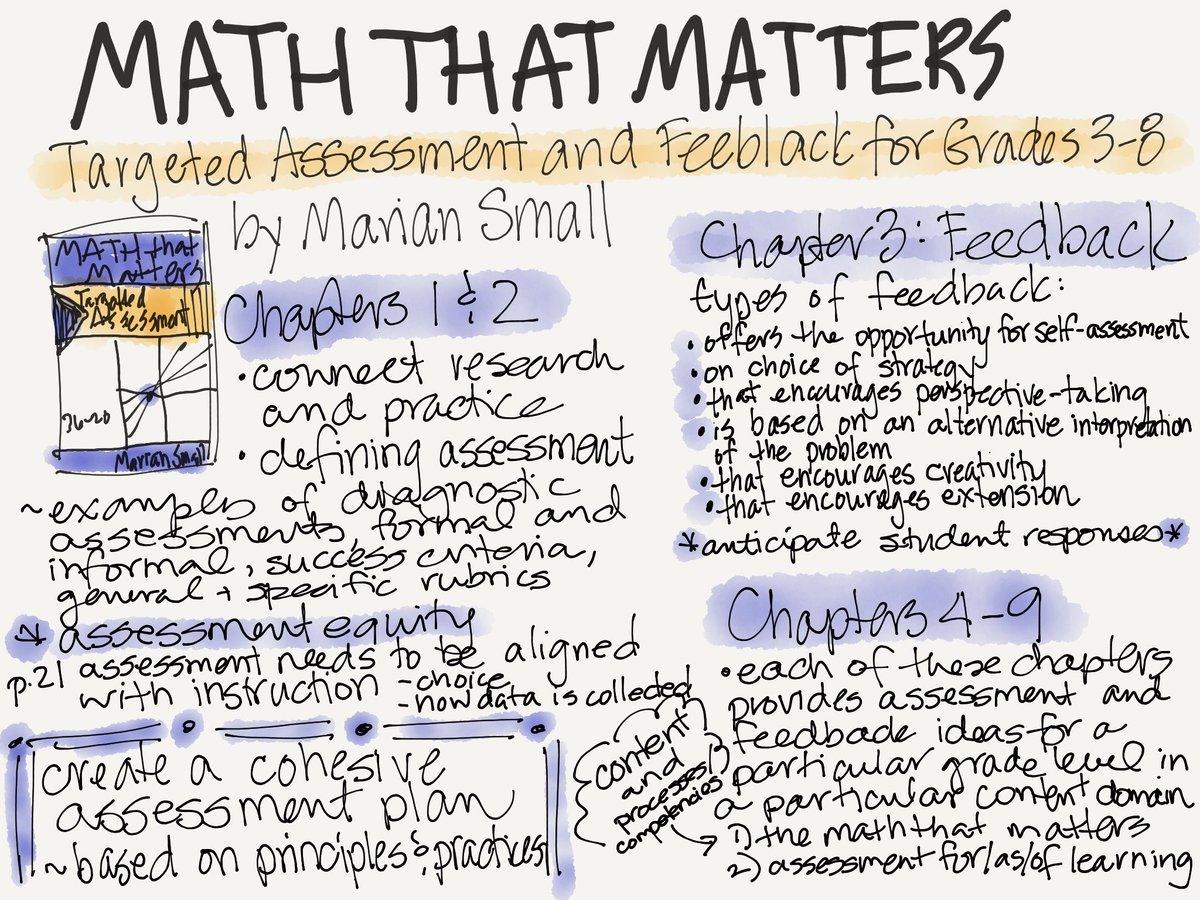 MATH THAT MATTERS
Targeted Assessment and Feeblack for Grades 3-8
by Marian Small
MATH that
Matters
Targeted
Assessment
36-20
Marian Small
Chapters 1 & 2
• connect research
and practice
• defining assessment
~ examples of diagnostic
assessments, formal and
informal, success criteria,
general + specific rubrics
* assessment equity
p.21 assessment needs to be aligned
with instruction - choice
- how data is collected
create a cohesive
assessment plan
~ based on principles & practices
Chapter 3: Feedback
types of feedback:
• offers the opportunity for self-assessment
• on choice of strategy
• that encourages perspective-taking
• is based on an alternative interpretation
of the problem
• that encourages creativity
• that encourages extension
*anticipate student responses*
Chapters 4-9
• each of these chapters
provides assessment and
feedback ideas for a
particular grade level in
a particular content domain
1) the math that matters
2) assessment for/as/of learning
content
and
processes/
competencies